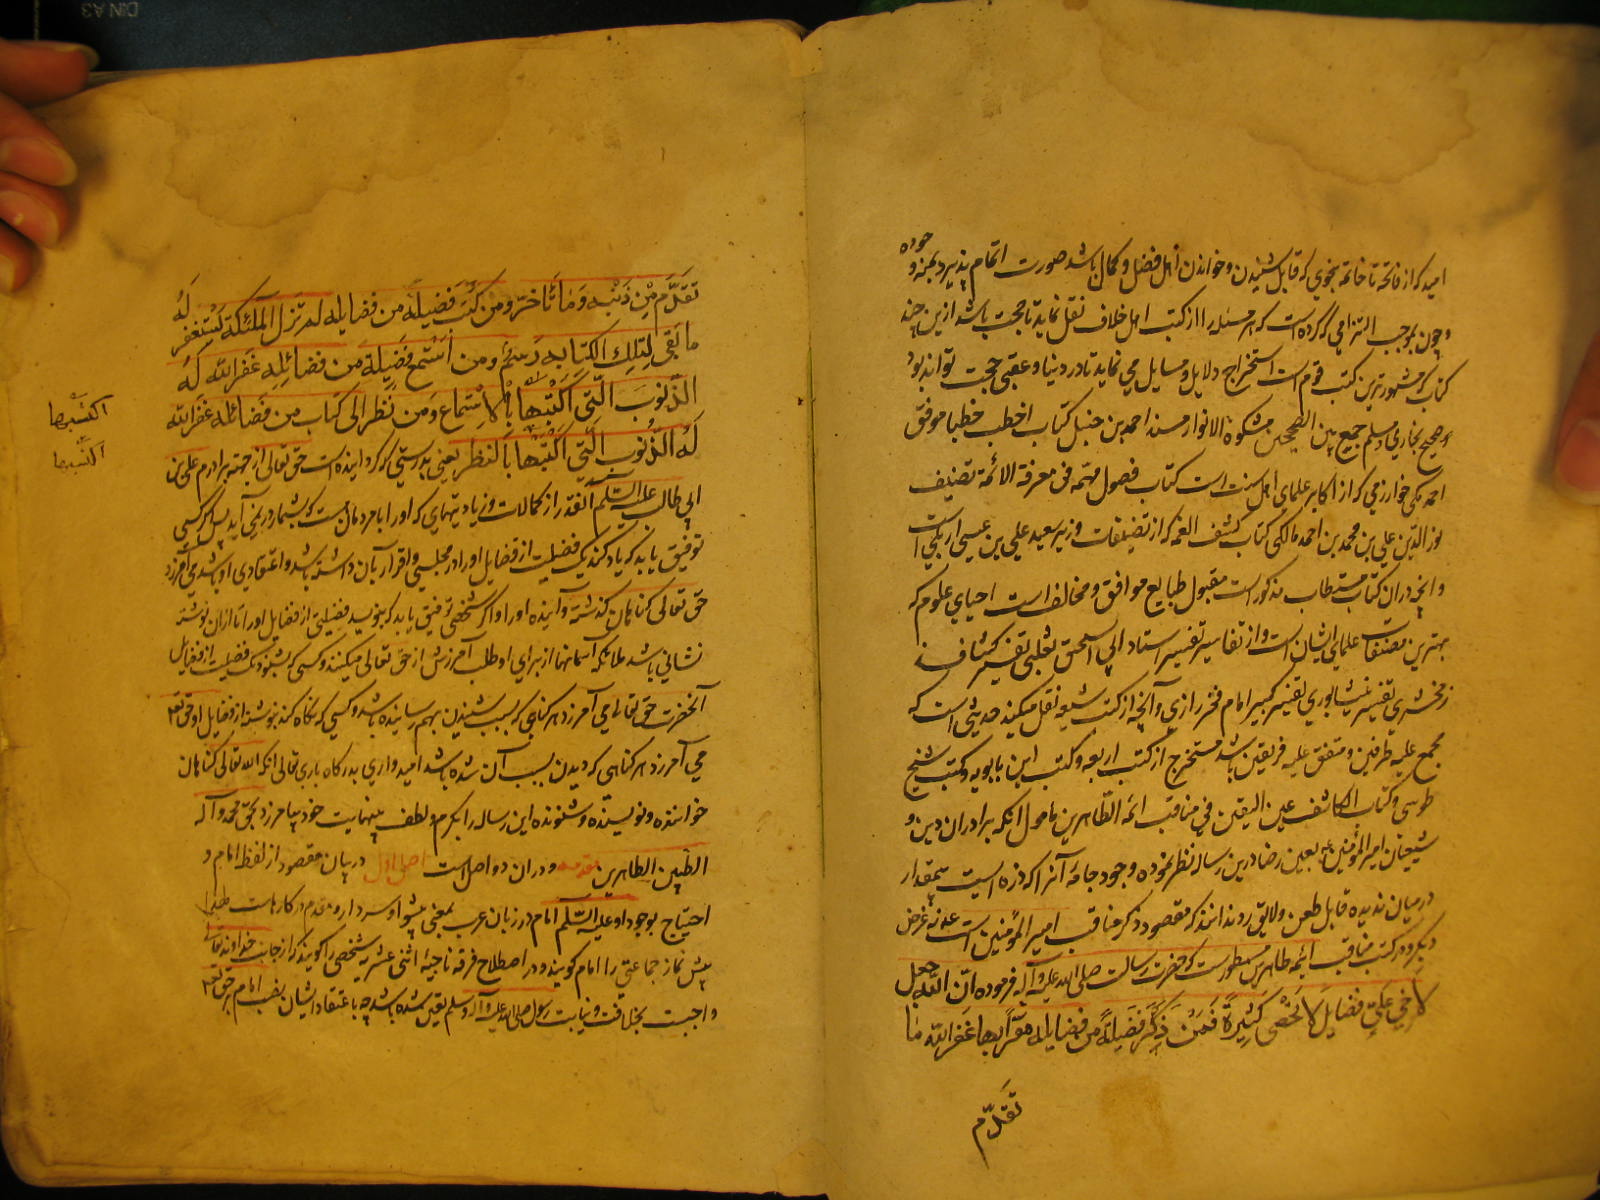 امید که از فاتحه تا خاتمه بنحوی که قابل شنیدن و خواندن اهل فضل و کمال باشد صورت اتمام پذیرد بمنه و جوده
و چون بموجب التزامی که کرده است که هر مسئله را از کتب اهل خلاف نقل نماید تا حجت باشد ازین چند
کتاب که مشهورترین کتب قوم است استخراج دلایل و مسایل می نماید تا در دنیا و عقبی حجت تواند بود
صحیح بخاری و مسلم جمع بین الصحیحین مشکوة الانوار مسند احمد بن حنبل کتاب اخطب خطبا موفق
احمد مکی خوارزمی که از اکابر علمای اهل سنت است کتاب فصول مهمه فی معرفة الائمة تصنیف
نور الدین علی بن محمد بن احمد مالکی کتاب کشف الغمه که از تصنیفات وزیر سعید علی بن عیسی اربلی است
و آنچه در آن کتاب مستطاب مذکور است مقبول طبایع موافق و مخالف است احیای علوم که
بهترین تصنیفات علمای ایشان است و از تفاسیر تفسیر استاد ابی اسحق ثعلبی تفسیر کشاف
زمخشری تفسیر نیشابوری تفسیر کبیر امام فخر رازی و آنچه از کتب شیعه نقل میکند حدیثی است که
مجمع علیه طرفین و متفق علیه فریقین باشد مستخرج از کتب اربعه و کتب ابن بابویه و کتب شیخ
طوسی و کتاب الکاشف عین الیقین فی مناقب ائمه الطاهرین مامول آنکه برادران دین و
شیعیان امیر المؤمنین بعین رضا درین رساله نظر نموده وجود جامه آنرا که ذره ایست بیمقدار
در میان ندیده قابل طعن و لایق رد ندانند که مقصود ذکر مناقب امیر المؤمنین است غرض
دیگر و در کتب مناقب ائمه طاهرین مسطور است که حضرت رسالت صلی الله علیه و آله فرموده ان الله جعل
لاخی علیّ فضایل لا تحصی کثیرة فمن ذکر فضیلة من فضایله مقرا بها غفر الله ما
تقدّم
تقدّم من ذنبه وما تأخر ومن کتب فضیلة من فضایله لم تزل الملئکة تستغفر له
ما بقی لتلک الکتابه رسم ومن استمع فضیلة من فضائله غفر الله له
الذنوب التی اکتبها بالاستماع ومن نظر الی کتاب من فضائله غفر الله
له الذنوب التی اکتبها بالنظر یعنی بدرستی که گردانیده است حق تعالی از جهة برادرم علی بن
ابی طالب علیه السلم آنقدر از کمالات و زیادتیهای که اورا با مردمان است که بشمار در نمی آید پس هر کسی
توفیق یابد که یاد کند یک فضیلت از فضایل اورا در مجلسی و اقرار بآن داشته باشد و اعتقادی او باشد می آمرزد
حق تعالی گناهان گذشته و آینده اورا و اگر شخصی توفیق یابد که بنویسد فضیلتی از فضایل اورا تا از آن نوشته
نشانی باشد ملائکه آسمانها از برای او طلب آمرزش از حق تعالی میکنند و کسی که بشنود یک فضیلت از فضایل
آنحضرت حق تعالی می آمرزد هر گناهی که بسبب شنیدن بهم رسانیده باشد و کسی که نگاه کند بنوشته از فضایل او حق تعالی
می آمرزد هر گناهی که دیدن بسبب آن شده باشد امیدواری بدرگاه باری تعالی آنکه الله تعالی گناهان
خواننده و نویسنده و شنونده این رساله را بکرم و لطف بینهایت خود بیامرزد بحق محمد و آله
الطیبین الطاهرین مقدمه و در آن دو اصل است اصل اول در بیان مقصود از لفظ امام و
احتیاج بوجود او علیه السّلم امام در زبان عرب بمعنی پیشوا و سردار و مقدم در کارهاست
پیش نماز جماعتی را امام گویند و در اصطلاح فرقه ناجیه اثنی عشریه شخصی را گویند که از جانب خداوند تعالی
واجبست بخلافت و نیابت رسول صلی الله علیه و آله و سلم تعیین شده باشد چه باعتقاد ایشان نصب امام بر حق تعالی
اکتسبها
اکتسبها
DIN A3